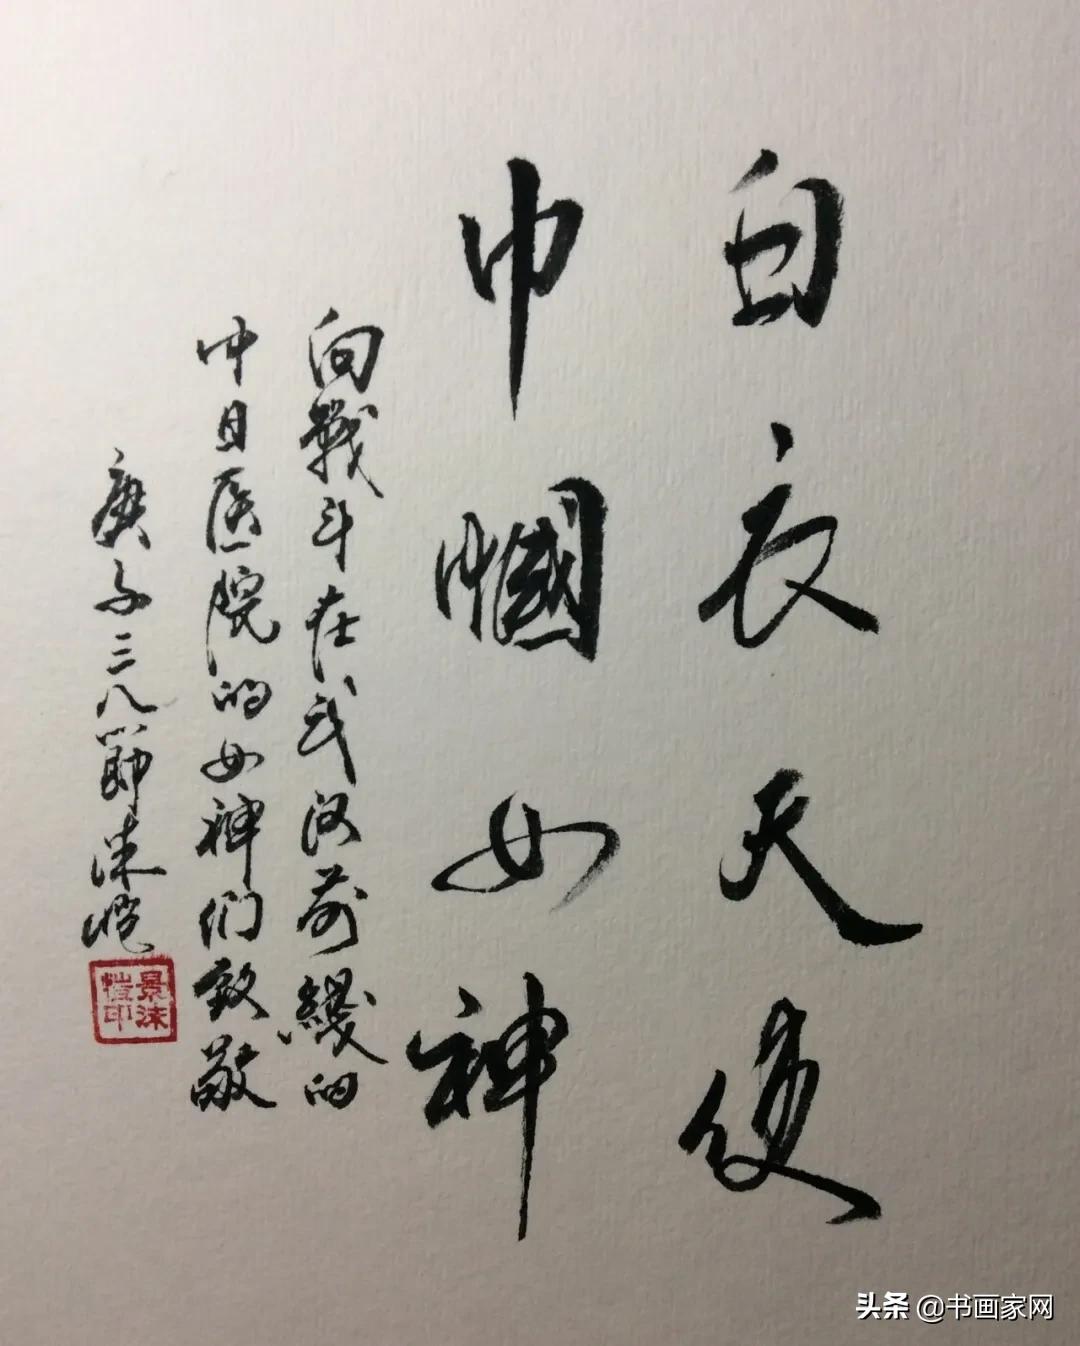 白衣天使
巾帼女神
向戰斗在武汉前綫的
中日医院的女神们致敬
庚子三八節沫愷
景沫
愷印
头条 @书画家网